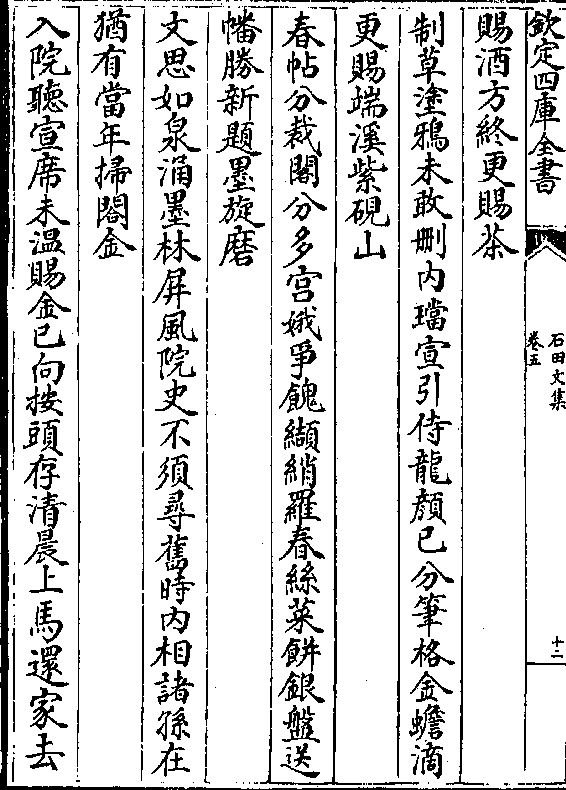 欽定四庫全書
石田文集
卷五
十二
賜酒方終更賜茶
制草塗鴉未敢刪內璫宣引侍龍顏已分筆格金蟾滴
更賜端溪紫硯山
春帖分裁閣分多宮娥爭餽纈綃羅春絲菜餅銀盤送
幡勝新題墨旋磨
文思如泉涌墨林屏風院史不須尋舊時內相諸孫在
猶有當年掃閣金
入院聽宣席未溫賜金已向按頭存清晨上馬還家去